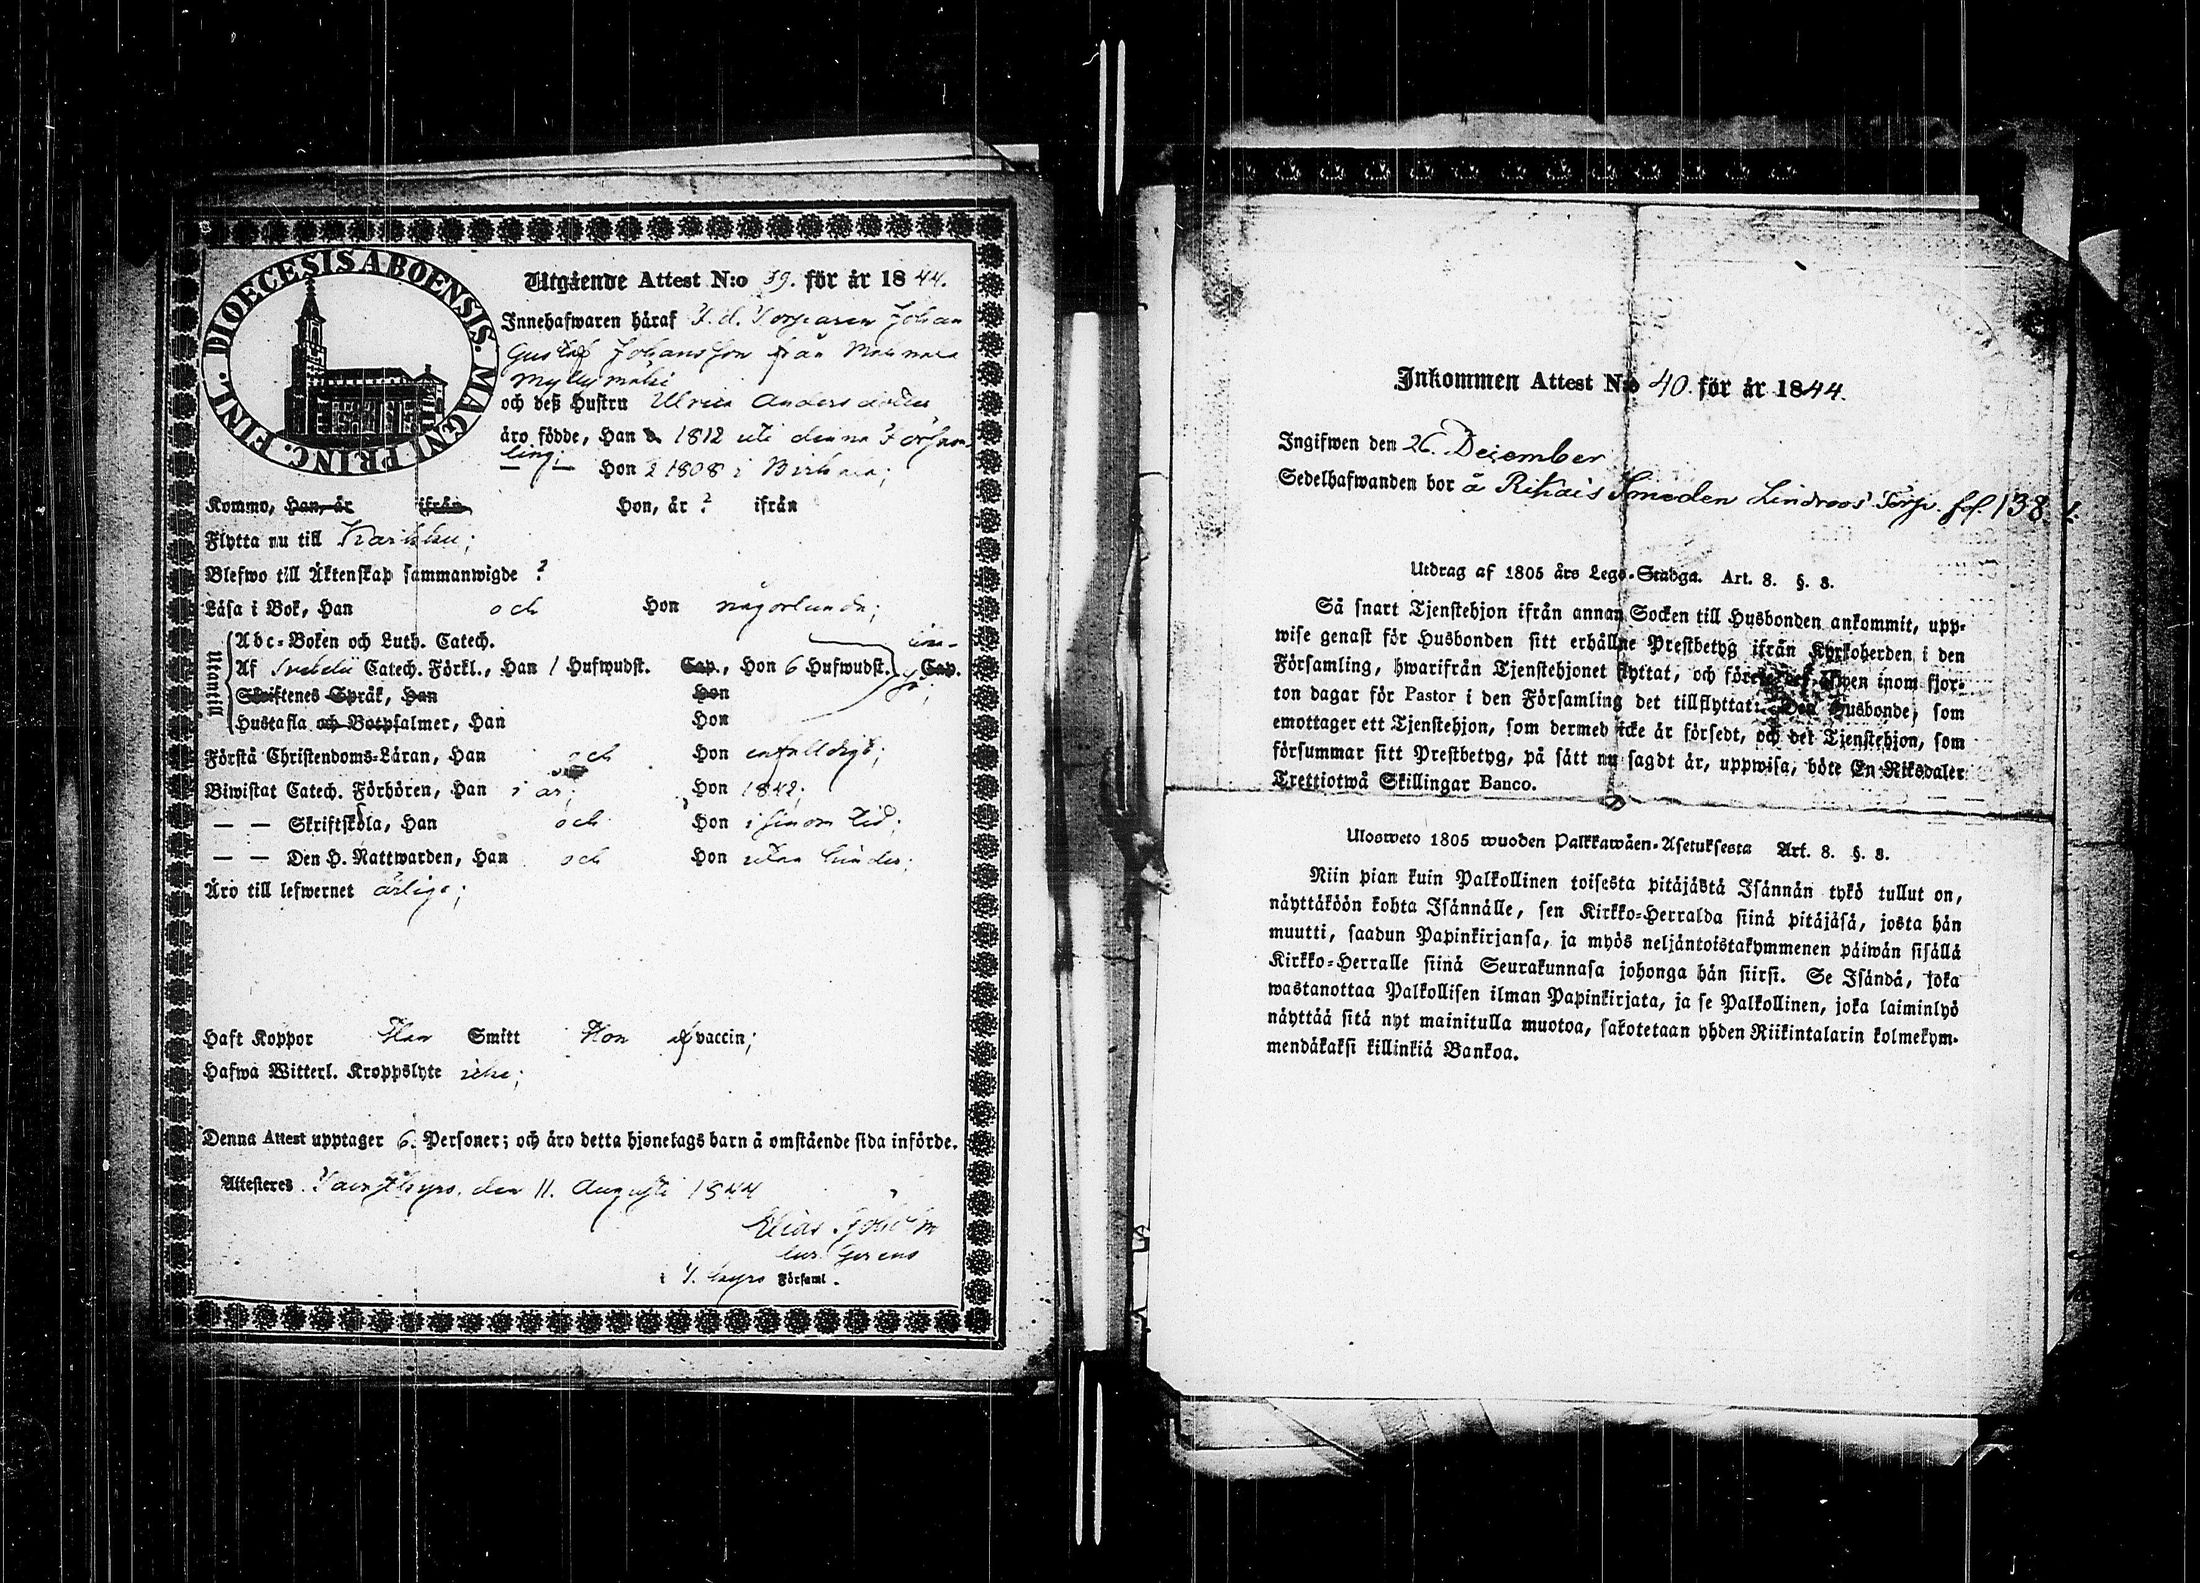 DIOECESIS ABOENSIS. MAGNI PRINC. FINL.
Utgående Attest N:o 39. för år 1844.
Innehafwaren häraf F. d. Torparen Johan
Gustaf Johansson från Mahnala
Myllymäki
och deß Hustru Ulrica Andersdotter
äro födde, Han 1812 uti denna Försam-
ling; Hon 1808 i Birkala;
Kommo, Han, år ifrån Hon, år ? ifrån
Flytta nu till Karkku;
Blefwo till Äktenskap sammanwigde ?
Läsa i Bok, Han och Hon någorlunda;
Utantill
Abc-Boken och Luth. Catech.
Af Svebelii Catech. Förkl., Han 1 Hufwudst. Cap., Hon 6 Hufwudst. Cap.
Skriftenes Språk, Han Hon
Hustafla och Botpsalmer, Han Hon
Förstå Christendoms-Läran, Han och Hon enfaldigt;
Biwistat Catech. Förhören, Han i år; Hon 1842;
— — Skriftskola, Han och Hon i sinom tid;
— — Den H. Nattwarden, Han och Hon utan hinder;
Äro till lefwernet ärliga;
Haft Koppor Han Smitt Hon af vaccin;
Hafwa Witterl. Kroppslyte icke;
Denna Attest upptager 6. Personer; och äro detta hjonelags barn å omstående sida införde.
Attesteres den 11. Augusti 1844
Elias
i T. Kyro Församl.
Inkommen Attest N:o 40. för år 1844.
Ingifwen den 26. December
Sedelhafwanden bor å Rikais Smeden Lindroos' Torp. fol. 138.
Utdrag af 1805 års Lego-Stadga. Art. 8. §. 8.
Så snart Tjenstehjon ifrån annan Socken till Husbonden ankommit, upp-
wise genast för Husbonden sitt erhållne Prestbetyg ifrån Kyrkoherden i den
Församling, hwarifrån Tjenstehjonet flyttat, och förete det äfwen inom fjor-
ton dagar för Pastor i den Församling det tillflyttat. Den Husbonde, som
emottager ett Tjenstehjon, som dermed icke är försedt, och det Tjenstehjon, som
försummar sitt Prestbetyg, på sätt nu sagdt är, uppwisa, böte En Riksdaler
Trettiotwå Skillingar Banco.
Ulosweto 1805 wuoden Palkkawäen-Asetuksesta Art. 8. §. 8.
Niin pian kuin Palkollinen toisesta pitäjästä Isännän tykö tullut on,
näyttäköön kohta Isännälle, sen Kirkko-Herralda siinä pitäjäsä, josta hän
muutti, saadun Papinkirjansa, ja myös neljäntoistakymmenen päiwän sisällä
Kirkko-Herralle siinä Seurakunnasa johonga hän siirsi. Se Isändä, joka
wastanottaa Palkollisen ilman Papinkirjata, ja se Palkollinen, joka laiminlyö
näyttää sitä nyt mainitulla muotoa, sakotetaan yhden Riikintalarin kolmekym-
mendäkaksi killinkiä Bankoa.